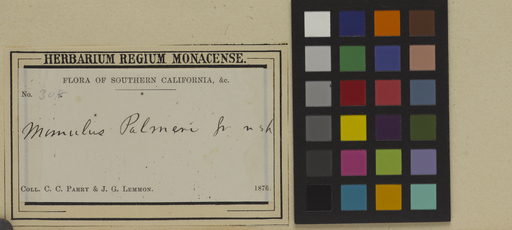 HERBARIUM REGIUM MONACENSE.
FLORA OF SOUTHERN CALIFORNIA, &c.
No.
Mimulus Palmeri Gr. n sp
COLL. C. C. PARRY & J. G. LEMMON. 1876.